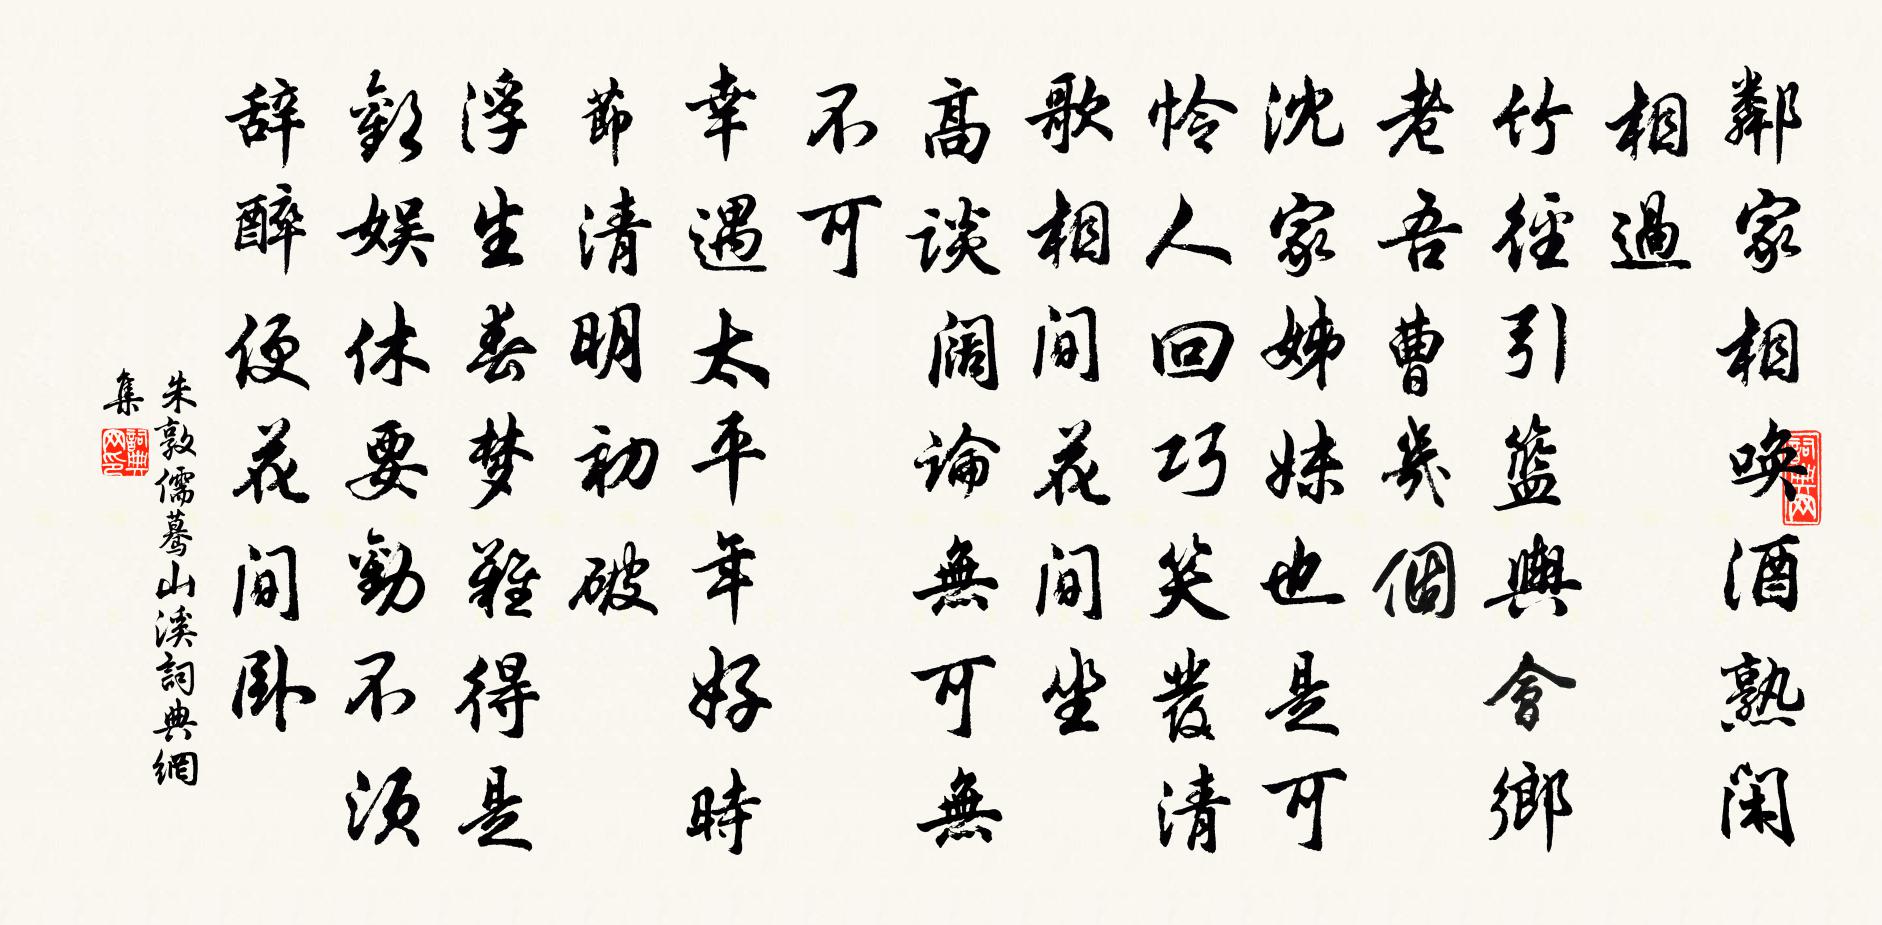 鄰家相喚酒熟閑
相過
竹徑引籃輿會鄉
老吾曹幾個
沈家姊妹也是可
怜人回巧笑發清
歌相間花間坐
高談闊論無可無
不可
幸遇太平年好時
節清明初破
浮生春梦難得是
歡娛休要勸不須
辞醉便花間卧
朱敦儒驀山溪詞典網
集
詞典網
詞典網印